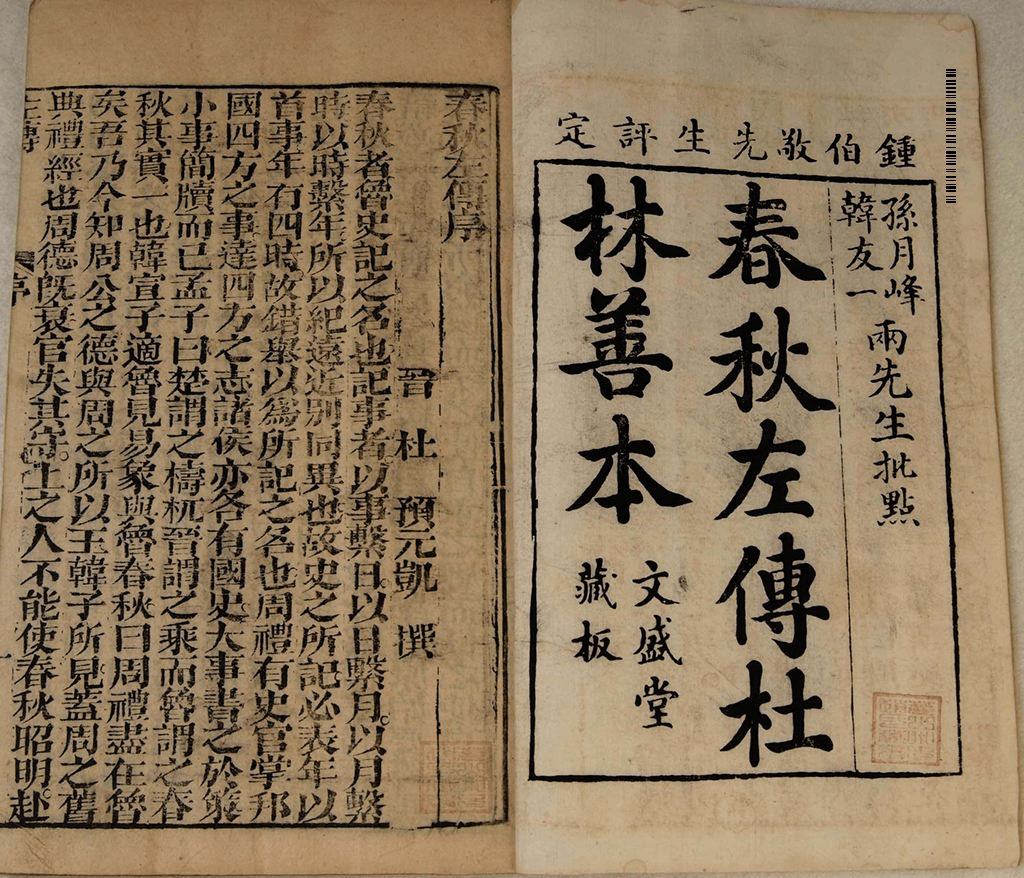 鍾伯敬先生評定
孫月峰
韓友一
兩先生批點
春秋左傳杜
林善本
文盛堂
藏板
春秋左傳序
晉 杜 預元凱 撰
春秋者魯史記之名也記事者以事繫日以日繫月以月繫
時以時繫年所以紀遠近別同異也故史之所記必表年以
首事年有四時故錯舉以為所記之名也周禮有史官掌邦
國四方之事達四方之志諸侯亦各有國史大事書之於策
小事簡牘而已孟子曰楚謂之檮杌晉謂之乘而魯謂之春
秋其實一也韓宣子適魯見易象與魯春秋曰周禮盡在魯
矣吾乃今知周公之德與周之所以王韓子所見蓋周之舊
典禮經也周德既衰官失其守。上之人不能使春秋昭明。赴
左傳
序
一